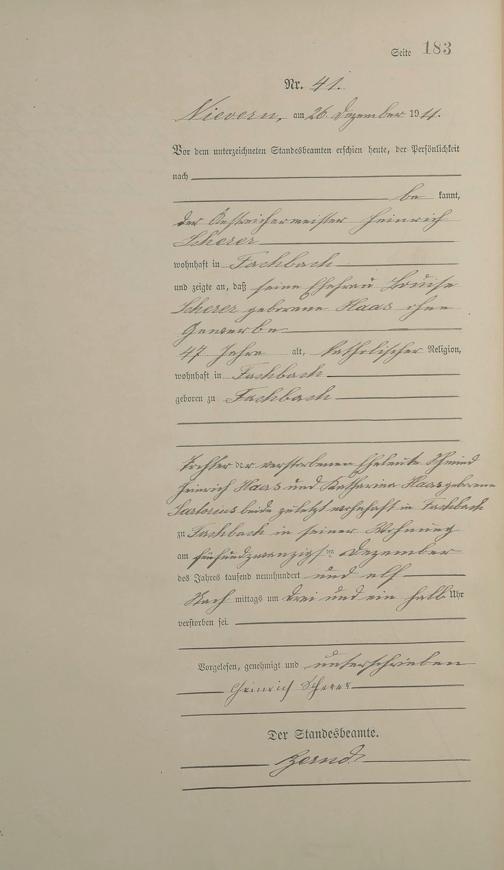 Seite 183
Nr. 41.
Nievern, am 26. Dezember 1911.
Vor dem unterzeichneten Standesbeamten erschien heute, der Persönlichkeit
nach
be kannt,
der Anstreichermeister Heinrich
Scherer
wohnhaft in Fachbach
und zeigte an, daß seine Ehefrau Louise
Scherer geborene Haas ohne
Gewerbe
47 Jahre alt, katholischer Religion,
wohnhaft in Fachbach
geboren zu Fachbach
Tochter der verstorbenen Eheleute Schmied
Heinrich Haas und Katharina Haas geborene
Sartorius beide zuletzt wohnhaft in Fachbach
zu Fachbach in seiner Wohnung
am fünfundzwanzigsten Dezember
des Jahres tausend neunhundert und elf
Nach mittags um drei und ein halb Uhr
verstorben sei.
Vorgelesen, genehmigt und unterschrieben
Heinrich Scherer
Der Standesbeamte.